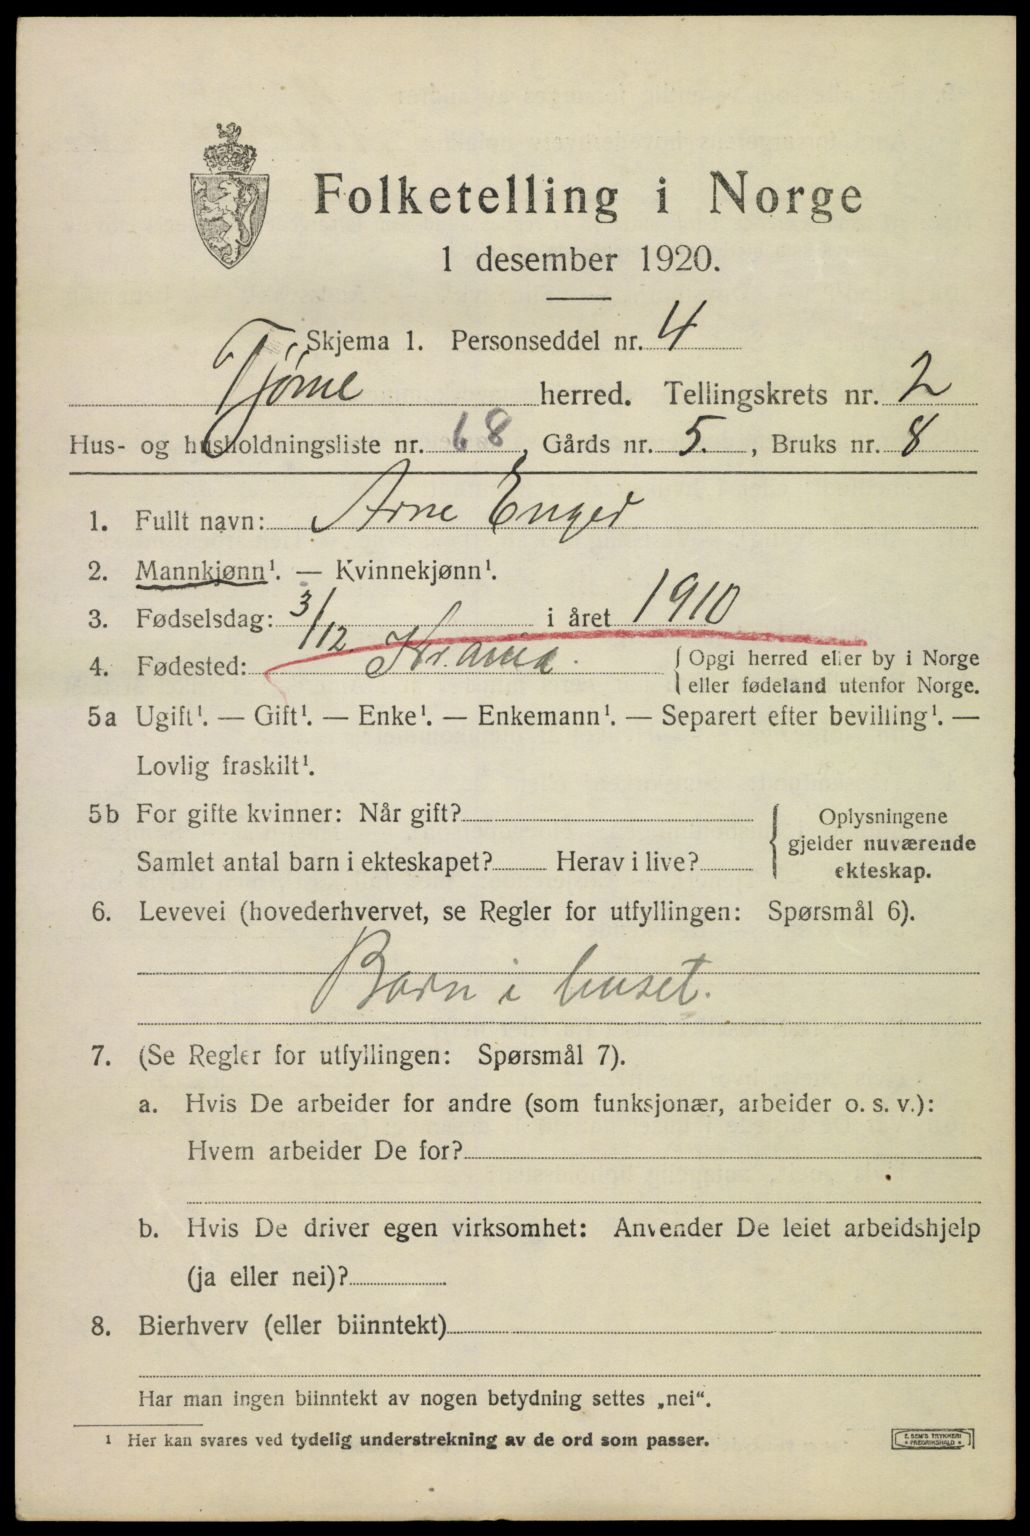 Folketelling i Norge
1 desember 1920.
Skjema 1. Personseddel nr. 4
Tjøme herred. Tellingskrets nr. 2
Hus- og husholdningsliste nr. 68, Gårds nr. 5., Bruks nr. 8
1. Fullt navn: Arne Enger
2. Mannkjønn¹. — Kvinnekjønn¹.
3. Fødselsdag: 3/12 i året 1910
4. Fødested: Kr.ania. { Opgi herred eller by i Norge
eller fødeland utenfor Norge.
5a Ugift¹. — Gift¹. — Enke¹. — Enkemann¹. — Separert efter bevilling¹. —
Lovlig fraskilt¹.
5b For gifte kvinner: Når gift?
Samlet antal barn i ekteskapet? Herav i live?
{ Oplysningene
gjelder nuværende
ekteskap.
6. Levevei (hovederhvervet, se Regler for utfyllingen: Spørsmål 6).
Barn i huset.
7. (Se Regler for utfyllingen: Spørsmål 7).
a. Hvis De arbeider for andre (som funksjonær, arbeider o. s. v.):
Hvem arbeider De for?
b. Hvis De driver egen virksomhet: Anvender De leiet arbeidshjelp
(ja eller nei)?
8. Bierhverv (eller biinntekt)
Har man ingen biinntekt av nogen betydning settes „nei“.
¹ Her kan svares ved tydelig understrekning av de ord som passer.
E. SEM'S TRYKKERI
• FREDRIKSHALD •